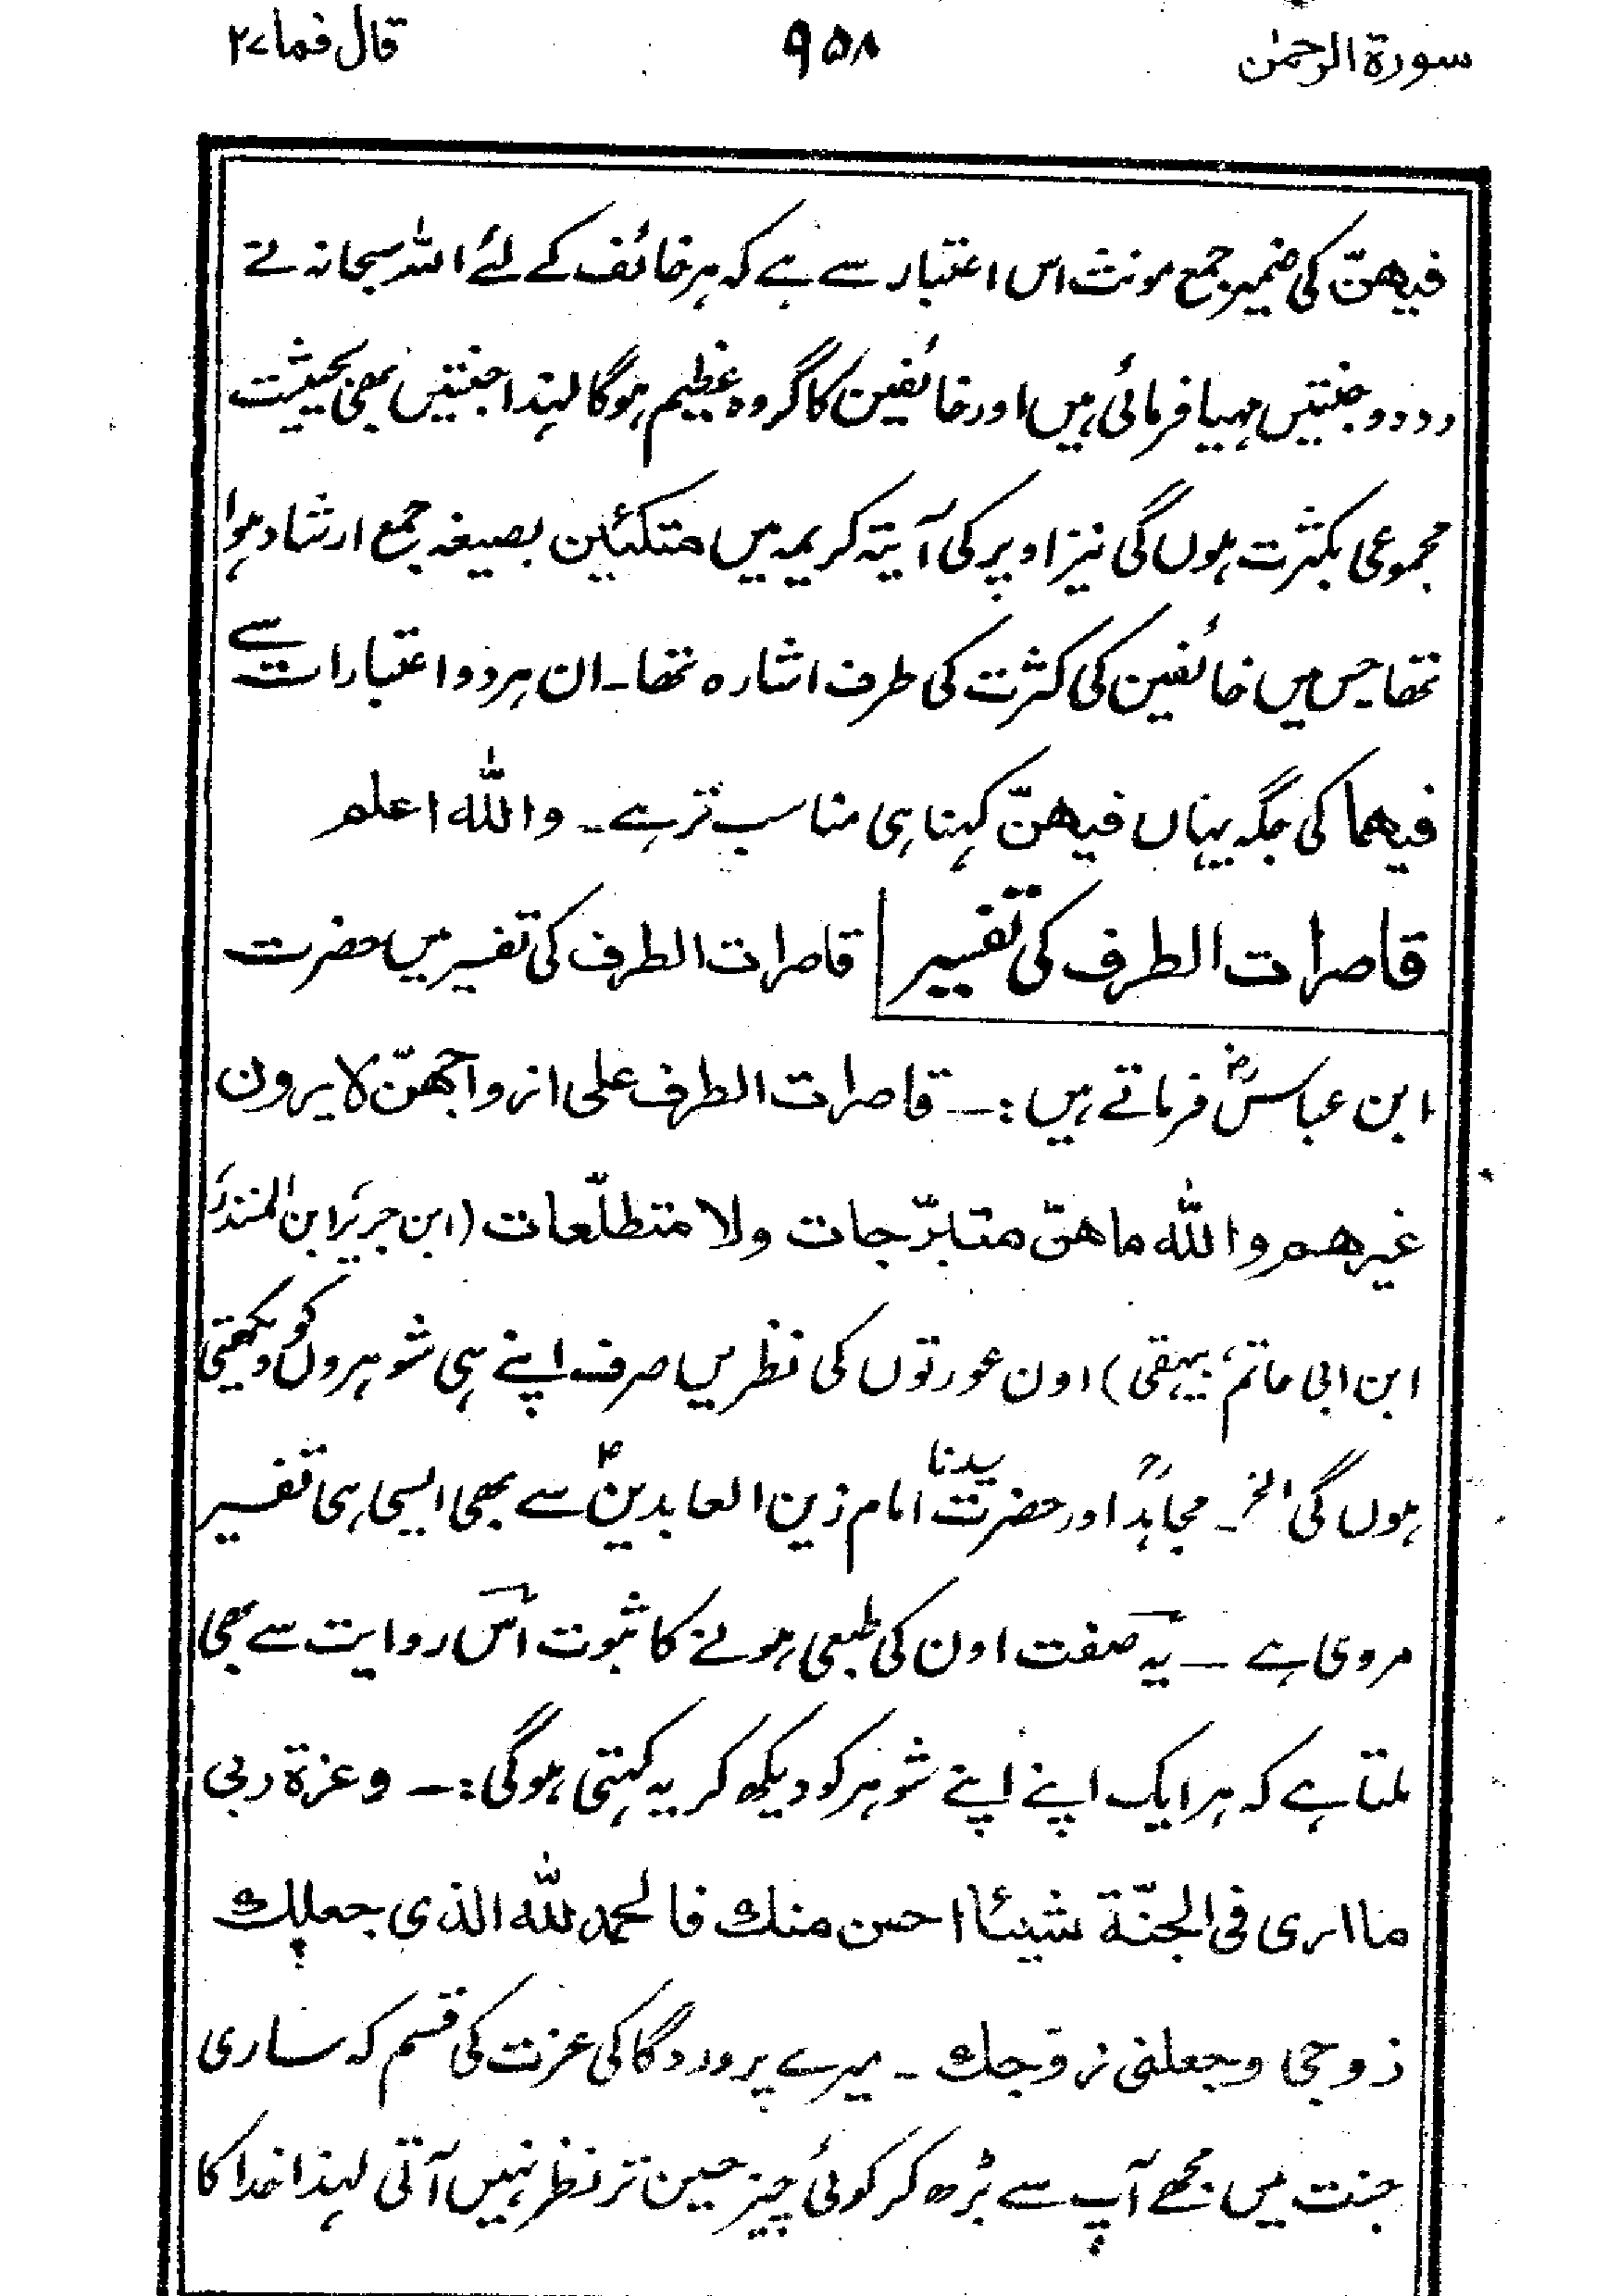 سورة الرحمٰن ۹۵۸ قال فما ۲۷
فیھنّ کی ضمیر جمع مونث اس اعتبار سے ہے کہ ہر خائف کے لئے اللہ سبحانہ نے
دو دو جنتیں مہیا فرمائی ہیں اور خائفین کا گروہ عظیم ہوگا لہٰذا جنتیں بھی بحیثیت
مجموعی بکثرت ہوں گی نیز اوپر کی آیتہ کریمہ میں متکئین بصیغہ جمع ارشاد ہوا
تھا جس میں خائفین کی کثرت کی طرف اشارہ تھا۔ ان ہر دو اعتبارات سے
فیھما کی جگہ یہاں فیھنّ کہنا ہی مناسب تر ہے۔ واللہ اعلم
قاصرات الطرف کی تفسیر قاصرات الطرف کی تفسیر میں حضرت
ابن عباسؓ فرماتے ہیں :۔ قاصرات الطرف علی ازواجھنّ لا یرون
غیرھم واللہ ما ھنّ متبرّجات ولا متطلّعات (ابن جریر، ابن المنذر،
ابن ابی حاتم، بیہقی) اون عورتوں کی نظریں صرف اپنے ہی شوہروں کو دیکھتی
ہوں گی الخ۔ مجاہدؒ اور حضرت سیدنا امام زین العابدینؑ سے بھی ایسی ہی تفسیر
مروی ہے۔ یہ صفت اون کی طبعی ہونے کا ثبوت اس روایت سے بھی
ملتا ہے کہ ہر ایک اپنے اپنے شوہر کو دیکھ کر یہ کہتی ہوگی :۔ وعزة ربی
ما اری فی الجنّة شیئا احسن منك فالحمد للہ الذی جعلك
زوجی وجعلنی زوجك ۔ میرے پروردگا کی عزت کی قسم کہ ساری
جنت میں مجھے آپ سے بڑھ کر کوئی چیز حسین تر نظر نہیں آتی لہذا خدا کا